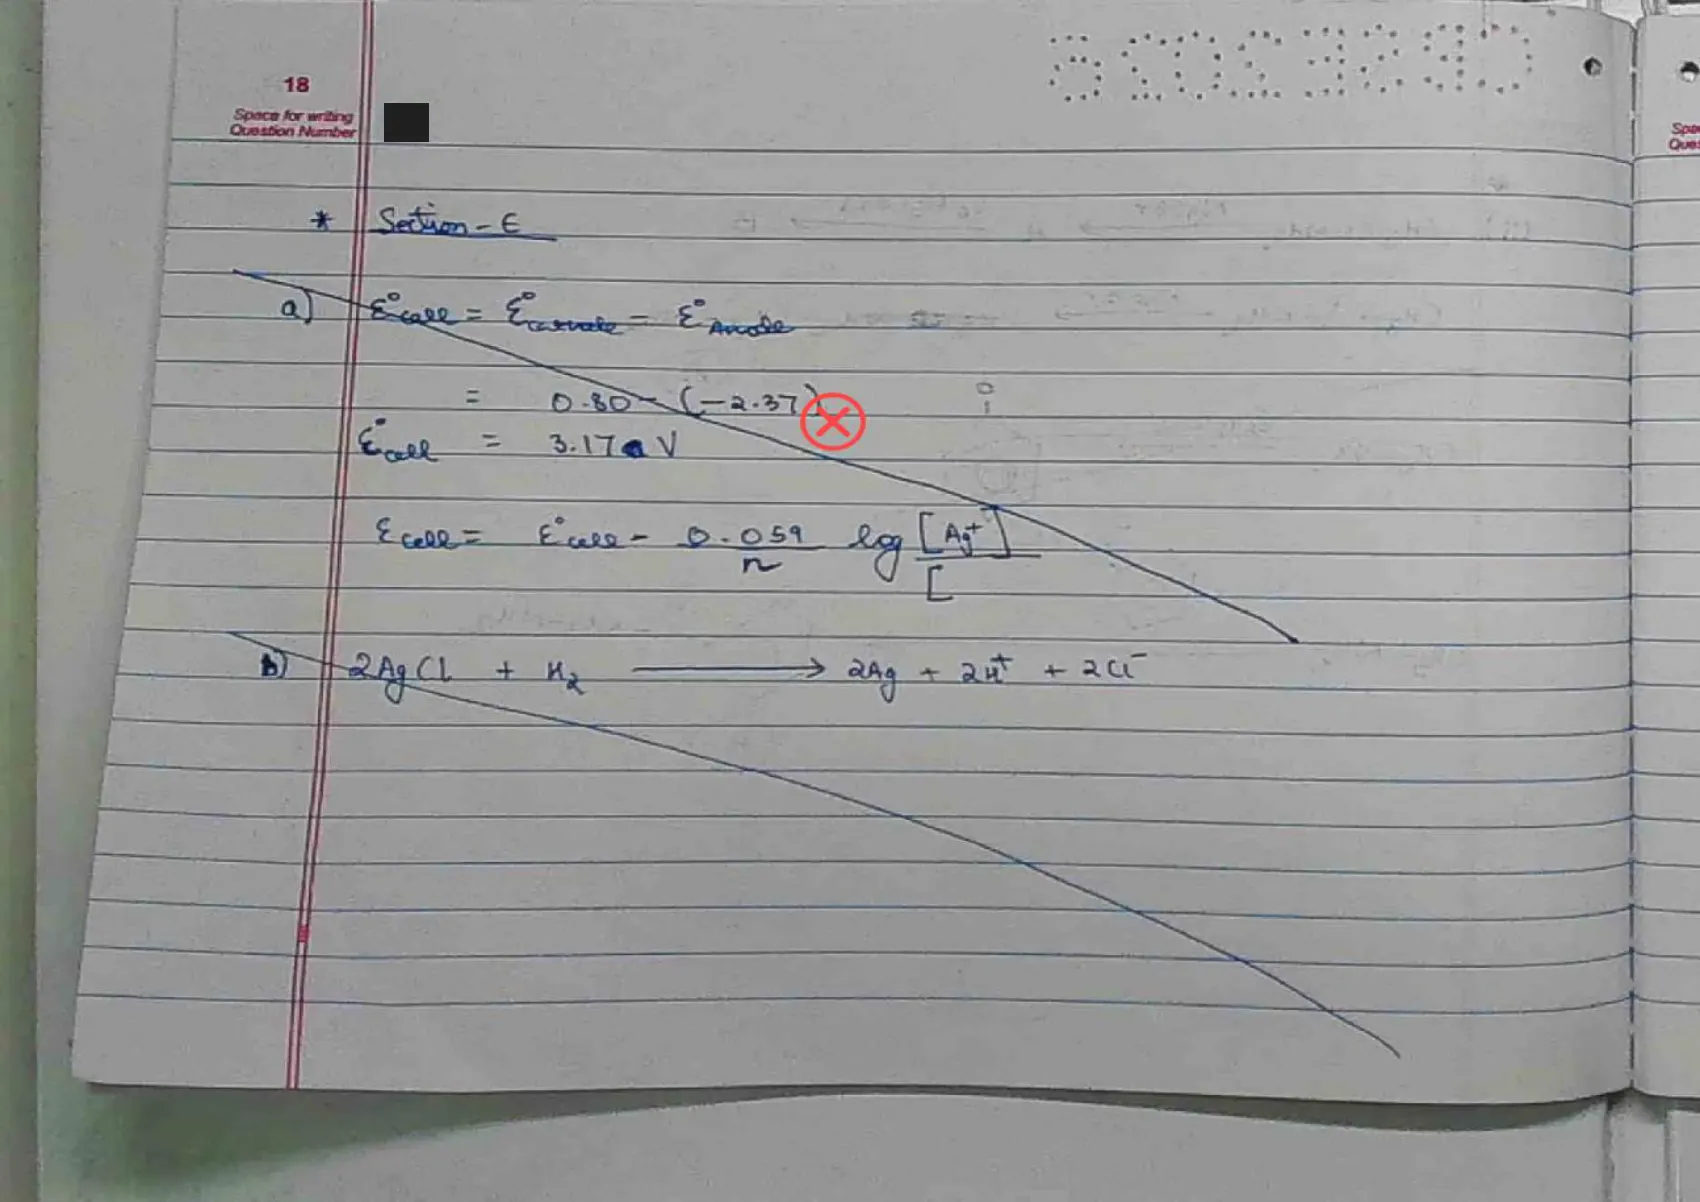 18
Space for writing
Question Number
* Section - E
a) E°cell = E°Cathode - E°Anode
= 0.80 - (-2.37)
E°cell = 3.17 V
Ecell = E°cell - 0.059/n log [Ag+]/[
b) 2AgCl + H2 ⟶ 2Ag + 2H+ + 2Cl-
Spa
Ques